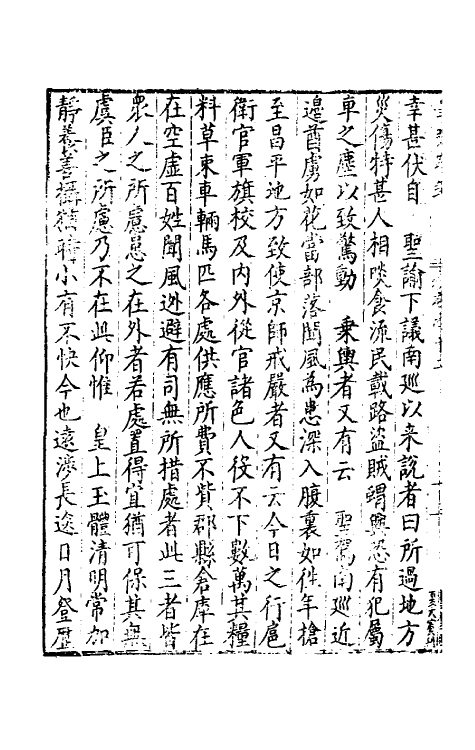 幸甚伏自　聖諭下議南廵以来說者曰所過地方
災傷特甚人相啖食流民載路盜賊竊興恐有犯屬
車之塵以致驚動　乘輿者又有云　聖駕南廵近
邉酋虜如花當部落聞風為患深入腹裏如徃年搶
至昌平地方致使京師戒嚴者又有云今日之行扈
衛官軍旗校及内外從官諸色人役不下數萬其糧
料草束車輛馬匹各處供應所費不貲郡縣倉庫在
在空虛百姓聞風迯避有司無所措處者此三者皆
衆人之所慮患之在外者若處置得宜猶可保其無
虞臣之所慮乃不在此仰惟　皇上玉體清明常加
靜養善攝猶時小有不快今也遠涉長途日月登歷